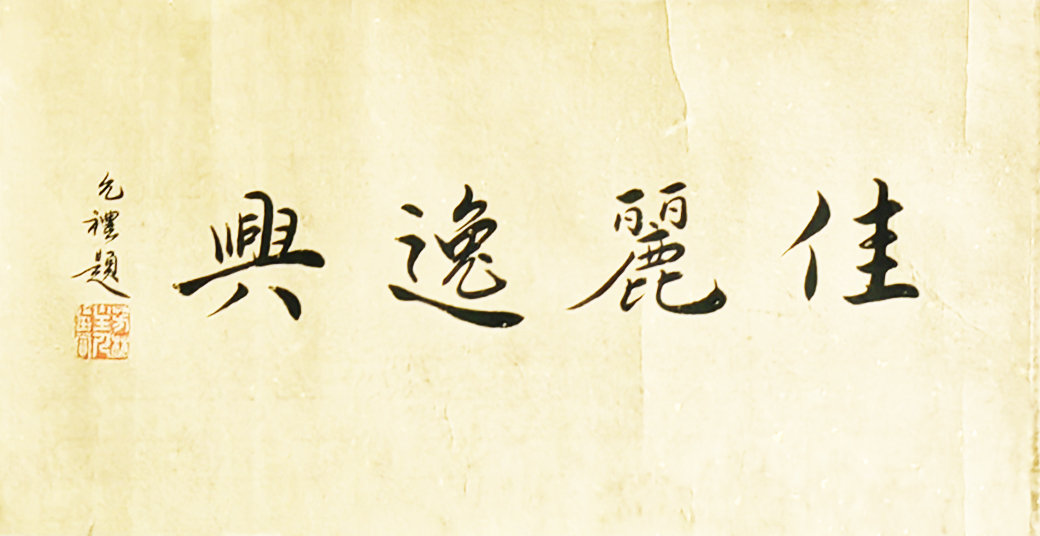 佳麗逸興
允禮題